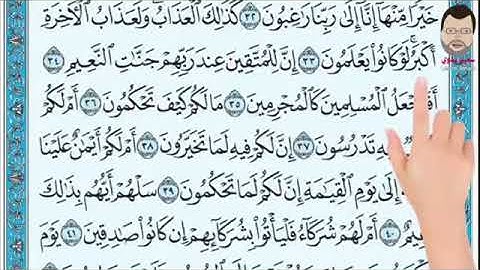 خَيْرًا مِّنْهَا إِنَّا إِلَىٰ رَبِّنَا رَٰغِبُونَ ٣٢ كَذَٰلِكَ ٱلْعَذَابُ وَلَعَذَابُ ٱلْأَخِرَةِ
أَكْبَرُ لَوْ كَانُوا۟ يَعْلَمُونَ ٣٣ إِنَّ لِلْمُتَّقِينَ عِندَ رَبِّهِمْ جَنَّٰتِ ٱلنَّعِيمِ ٣٤
ٱلْمُسْلِمِينَ كَٱلْمُجْرِمِينَ ٣٥ مَا لَكُمْ كَيْفَ تَحْكُمُونَ ٣٦ أَمْ لَكُمْ
تَدْرُسُونَ ٣٧ إِنَّ لَكُمْ فِيهِ لَمَا تَخَيَّرُونَ ٣٨ أَمْ لَكُمْ أَيْمَٰنٌ عَلَيْنَا
إِلَىٰ يَوْمِ ٱلْقِيَٰمَةِ إِنَّ لَكُمْ لَمَا تَحْكُمُونَ ٣٩ سَلْهُمْ أَيُّهُم بِذَٰلِكَ
٤٠ أَمْ لَهُمْ شُرَكَآءُ فَلْيَأْتُوا۟ بِشُرَكَآئِهِمْ إِن كَانُوا۟ صَٰدِقِينَ ٤١ يَوْمَ